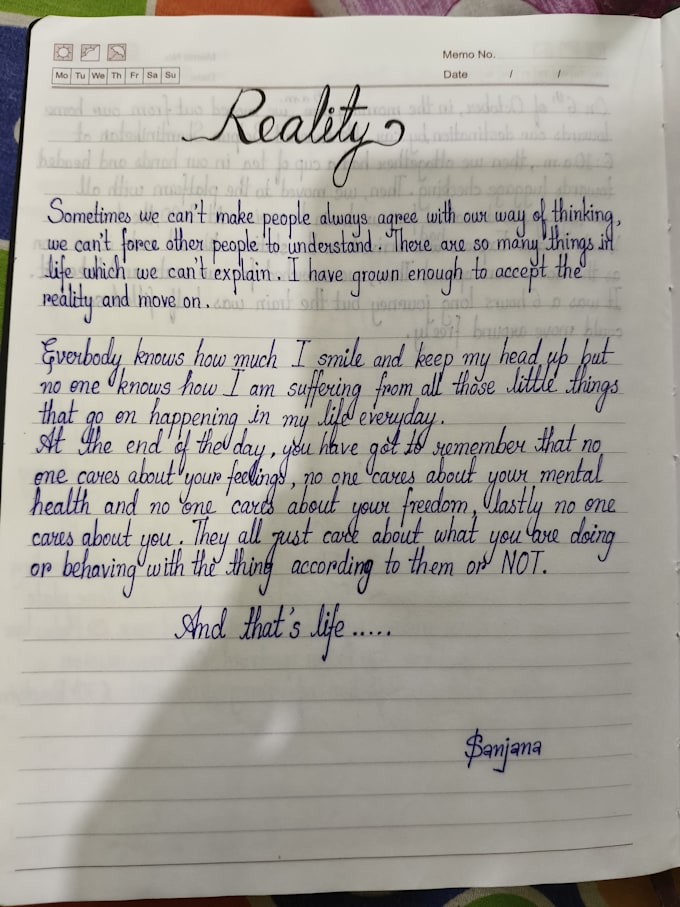 Memo No.
Mo Tu We Th Fr Sa Su
Date / /
Reality
Sometimes we can't make people always agree with our way of thinking,
we can't force other people to understand. There are so many things in
life which we can't explain. I have grown enough to accept the
reality and move on.
Everbody knows how much I smile and keep my head up but
no one knows how I am suffering from all those little things
that go on happening in my life everyday.
At the end of the day, you have got to remember that no
one cares about your feelings, no one cares about your mental
health and no one cares about your freedom, lastly no one
cares about you. They all just care about what you are doing
or behaving with the thing according to them or NOT.
And that's life.....
$anjana